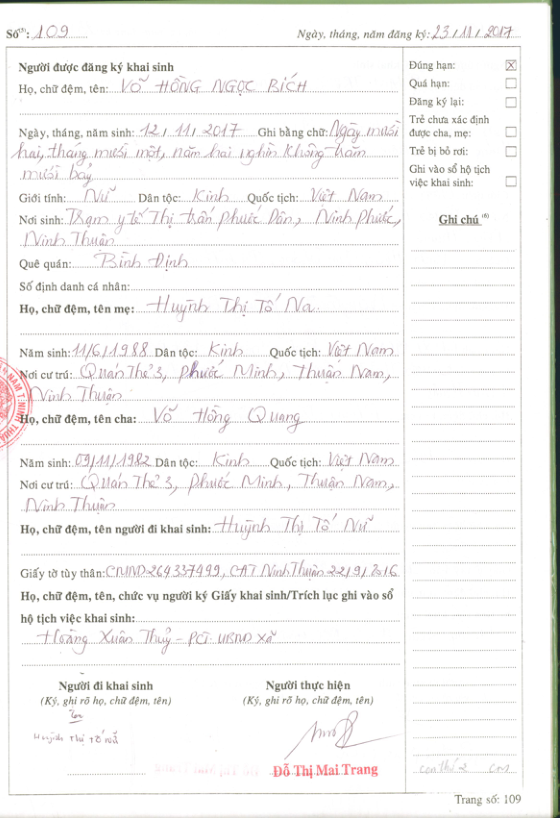 Số⁽⁵⁾: 109 Ngày, tháng, năm đăng ký: 23/11/2017
Người được đăng ký khai sinh
Họ, chữ đệm, tên: VÕ HỒNG NGỌC BÍCH
Ngày, tháng, năm sinh: 12/11/2017 Ghi bằng chữ: Ngày mười
hai, tháng mười một, năm hai nghìn không trăm
mười bảy
Giới tính: Nữ Dân tộc: Kinh Quốc tịch: Việt Nam
Nơi sinh: Trạm y tế Thị trấn Phước Dân, Ninh Phước,
Ninh Thuận
Quê quán: Bình Định
Số định danh cá nhân:
Họ, chữ đệm, tên mẹ: Huỳnh Thị Tố Na
Năm sinh: 11/6/1988 Dân tộc: Kinh Quốc tịch: Việt Nam
Nơi cư trú: Quán Thẻ 3, Phước Minh, Thuận Nam,
Ninh Thuận
Họ, chữ đệm, tên cha: Võ Hồng Quang
Năm sinh: 09/11/1982 Dân tộc: Kinh Quốc tịch: Việt Nam
Nơi cư trú: Quán Thẻ 3, Phước Minh, Thuận Nam,
Ninh Thuận
Họ, chữ đệm, tên người đi khai sinh: Huỳnh Thị Tố Nữ
Giấy tờ tùy thân: CMND 264337499, CAT Ninh Thuận 22/9/2016
Họ, chữ đệm, tên, chức vụ người ký Giấy khai sinh/Trích lục ghi vào sổ
hộ tịch việc khai sinh:
Hoàng Xuân Thuỷ - PCT. UBND xã
Người đi khai sinh
(Ký, ghi rõ họ, chữ đệm, tên)
Huỳnh Thị Tố Nữ
Người thực hiện
(Ký, ghi rõ họ, chữ đệm, tên)
Đỗ Thị Mai Trang
Đúng hạn: X
Quá hạn:
Đăng ký lại:
Trẻ chưa xác định
được cha, mẹ:
Trẻ bị bỏ rơi:
Ghi vào sổ hộ tịch
việc khai sinh:
Ghi chú ⁽⁶⁾
con thứ 2
Trang số: 109